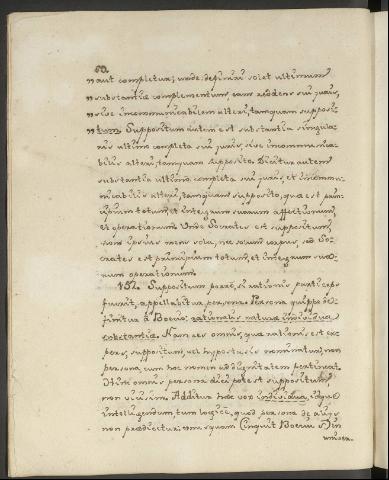 60.
„ aut completur; unde definiri solet ultimum
„ substantiæ complementum, eam reddens sui juris,
„ sive incommunicabilem alteri, tamquam supposi-
„ tum. Suppositum autem est substantia singula-
ris ultimo completa sui juris, sive incommunica-
bilis alteri, tamquam supposito. Dicitur autem
substantia ultimo completa sui juris, et incommu-
nicabilis alteri, tamquam supposito, quæ est prin-
cipium totum, et integrum suarum affectionum,
et operationum. Unde Socrates est suppositum,
non ipsius mens sola, nec solum corpus, sed So-
crates est principium totum, et integrum sua-
rum operationum.
152. Suppositum porro, si rationis particeps
fuerit, appellabitur persona. Persona quippe de-
finitur à Boetio: rationalis naturæ individua
substantia. Nam res omnis, quæ rationis est ex-
pers, suppositum, vel hypostasis nominatur, non
persona, cum hoc nomen ad dignitatem pertineat.
Hinc omnis persona dici potest suppositum,
non vicissim. Additur hæc vox individua, idque
intelligendum, tum logicè, quod persona de aliis
non prædicetur: nusquam (inquit Boetius) in
univer-